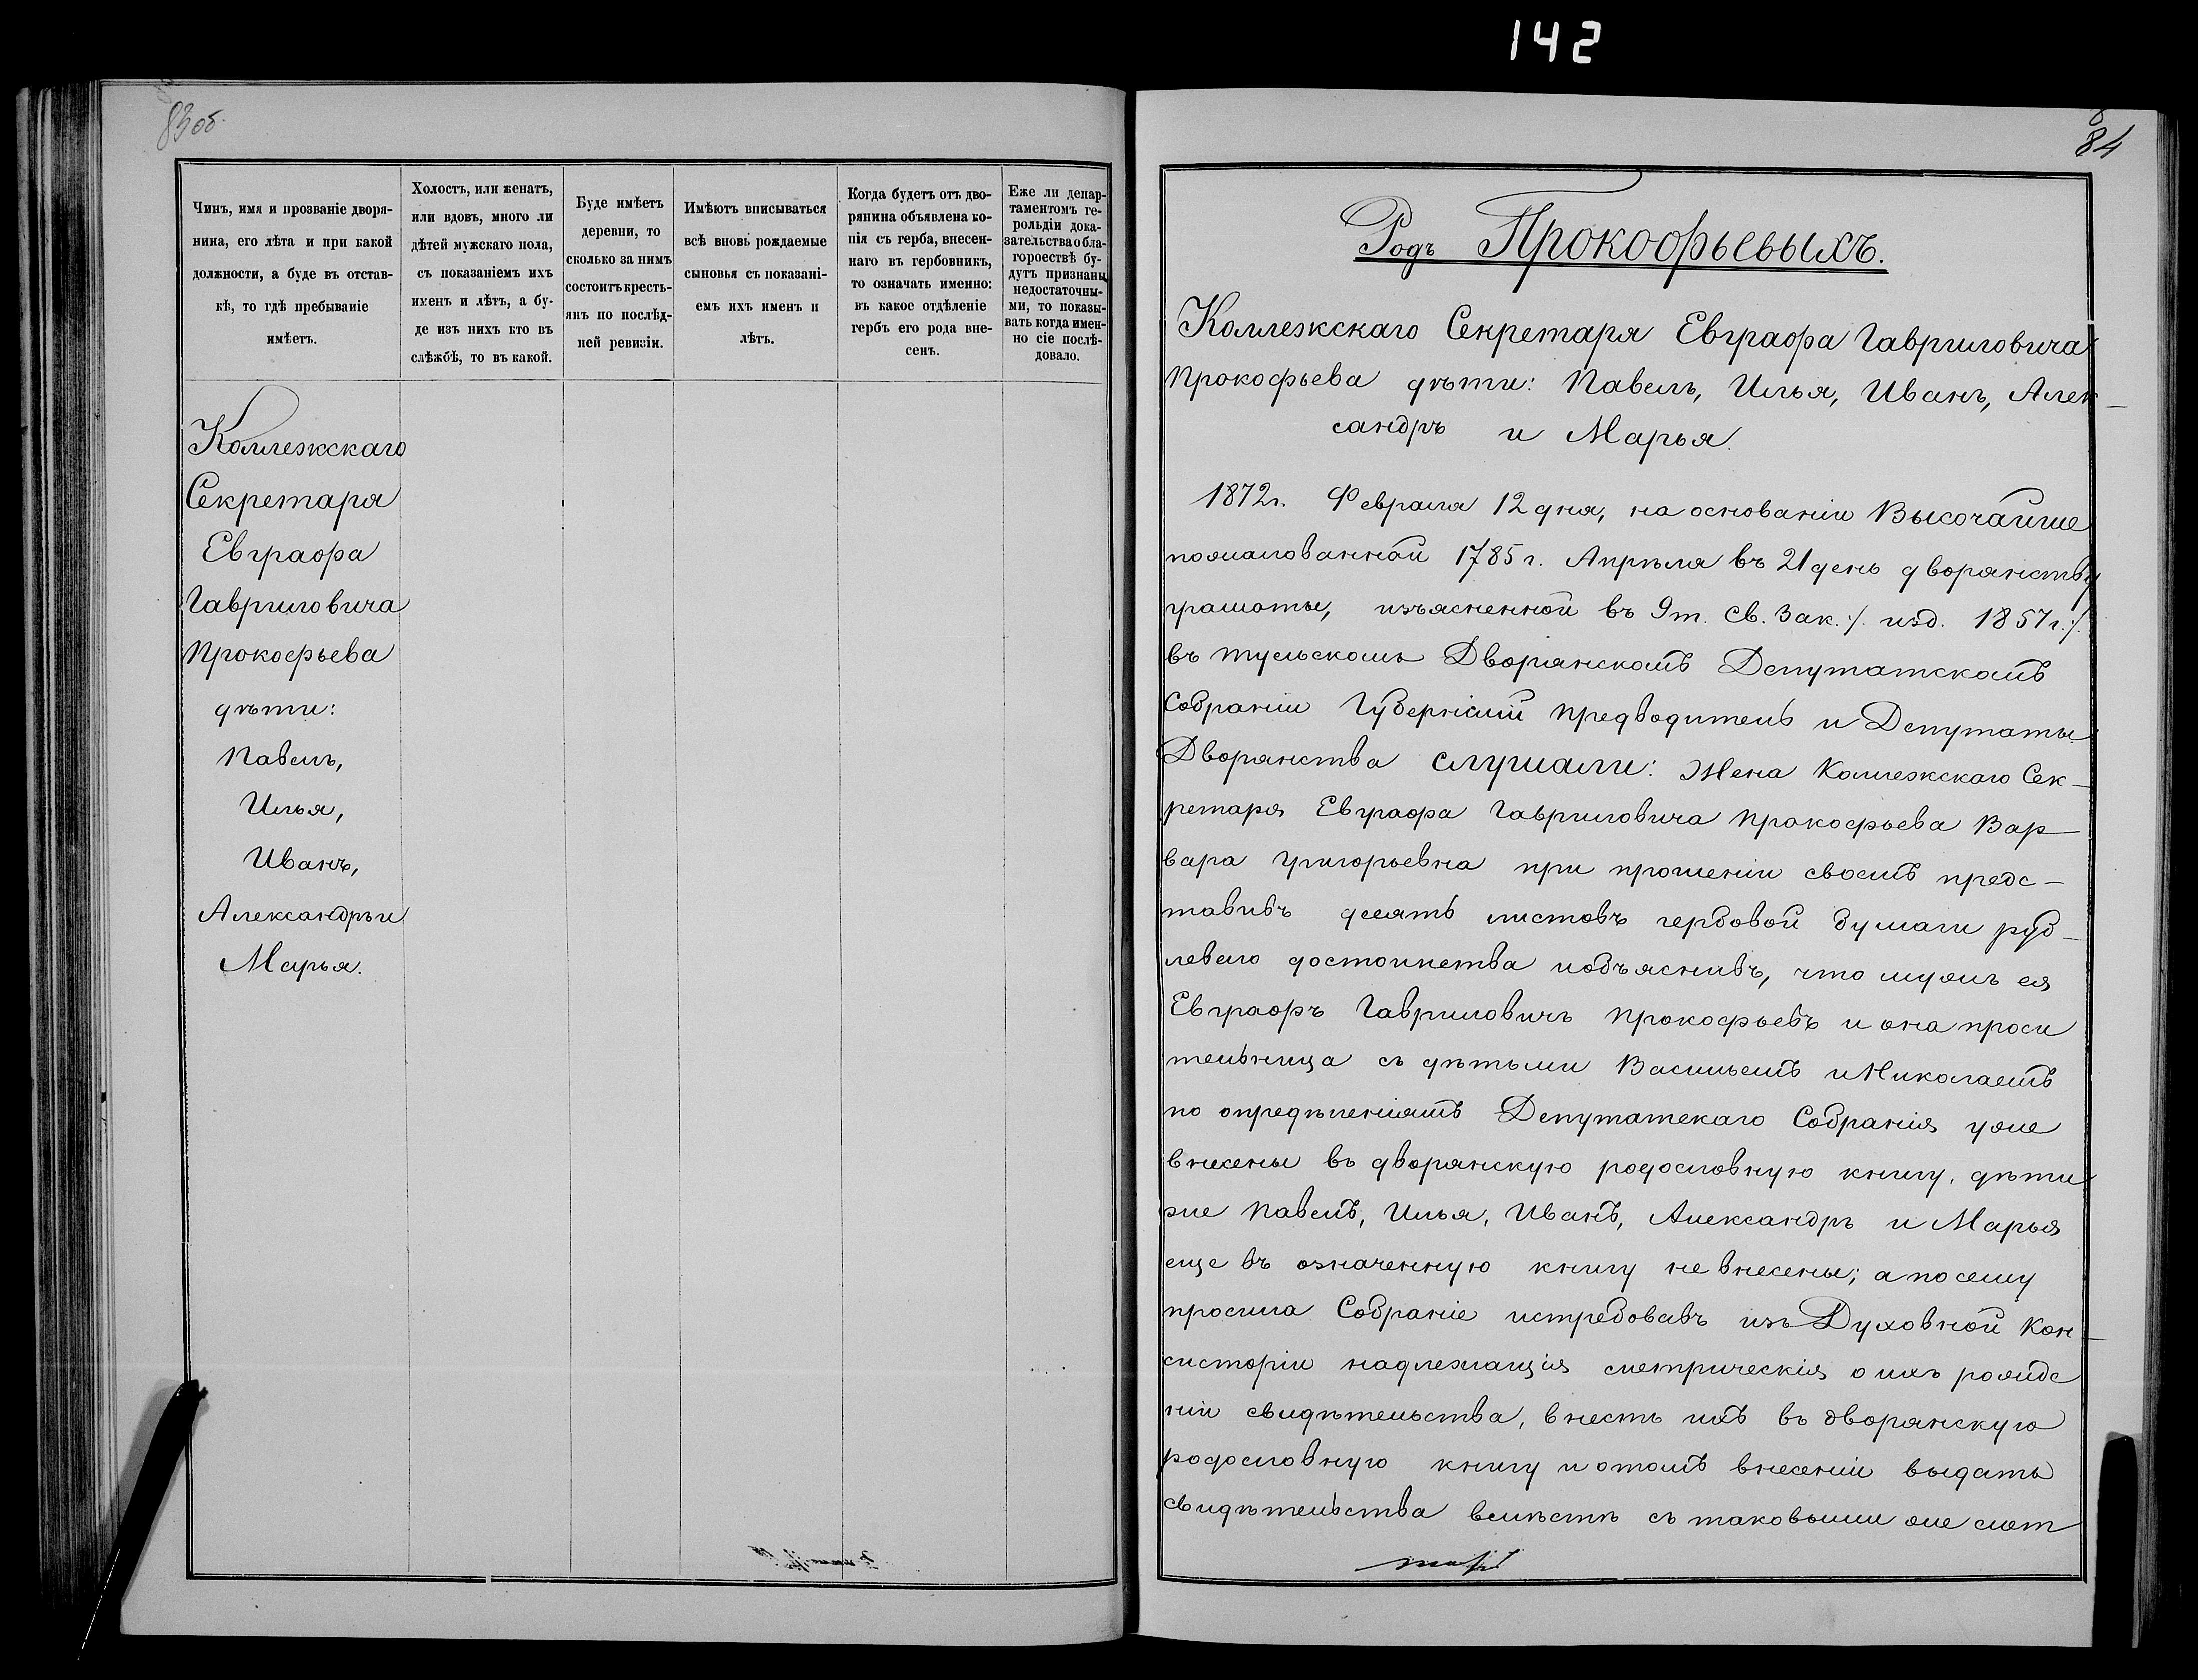 142
83 об.
84
Чинъ, имя и прозваніе дворя-
нина, его лѣта и при какой
должности, а буде въ отстав-
кѣ, то гдѣ пребываніе
имѣетъ.
Холостъ, или женатъ,
или вдовъ, много ли
дѣтей мужскаго пола,
съ показаніемъ ихъ
именъ и лѣтъ, а бу-
де изъ нихъ кто въ
слѣжбѣ, то въ какой.
Буде имѣетъ
деревни, то
сколько за нимъ
состоитъ кресть-
янъ по послѣд-
ней ревизіи.
Имѣютъ вписываться
всѣ вновь рождаемые
сыновья съ показані-
емъ ихъ именъ и
лѣтъ.
Когда будетъ отъ дво-
рянина объявлена ко-
пія съ герба, внесен-
наго въ гербовникъ,
то означать именно:
въ какое отдѣленіе
гербъ его рода вне-
сенъ.
Еже ли депар-
таментомъ ге-
рольдіи дока-
зательства о бла-
гороествѣ бу-
дутъ признаны
недостаточны-
ми, то показы-
вать когда имен-
но сіе послѣ-
довало.
Коллежскаго
Секретаря
Евграфа
Гавриловича
Прокофьева
дѣти:
Павелъ,
Илья,
Иванъ,
Александръ и
Марья.
Родъ Прокофьевыхъ.
Коллежскаго Секретаря Евграфа Гавриловича
Прокофьева дѣти: Павелъ, Илья, Иванъ, Алек-
сандръ и Марья.
1872г. Февраля 12 дня, на основаніи Высочайше
пожалованной 1785 г. Апрѣля въ 21 день дворянству
грамоты, изъясненной въ 9 т. Св. Зак. /. изд. 1857 г. /.
въ Тульскомъ Дворянскомъ Депутатскомъ
Собраніи Губернскій Предводитель и Депутаты
Дворянства слушали: Жена Коллежскаго Сек-
ретаря Евграфа Гавриловича Прокофьева Вар-
вара Григорьевна при прошеніи своемъ предс-
тавивъ десять листовъ гербовой бумаги руб-
леваго достоинства и объяснивъ, что мужъ ея
Евграфъ Гавриловичъ Прокофьевъ и она проси
тельница съ дѣтьми Васильемъ и Николаемъ
по опредѣленіямъ Депутатскаго Собранія уже
внесены въ дворянскую родословную книгу, дѣти
же Павелъ, Илья, Иванъ, Александръ и Марья
еще въ означенную книгу не внесены; а посему
просила Собраніе истребовавъ изъ Духовной Кон-
систоріи надлежащія метрическія о ихъ рожде
ніи свидѣтельства, внесть ихъ въ дворянскую
родословную книгу и о томъ внесеніи выдать
свидѣтельства вмѣстѣ съ таковыми же мет